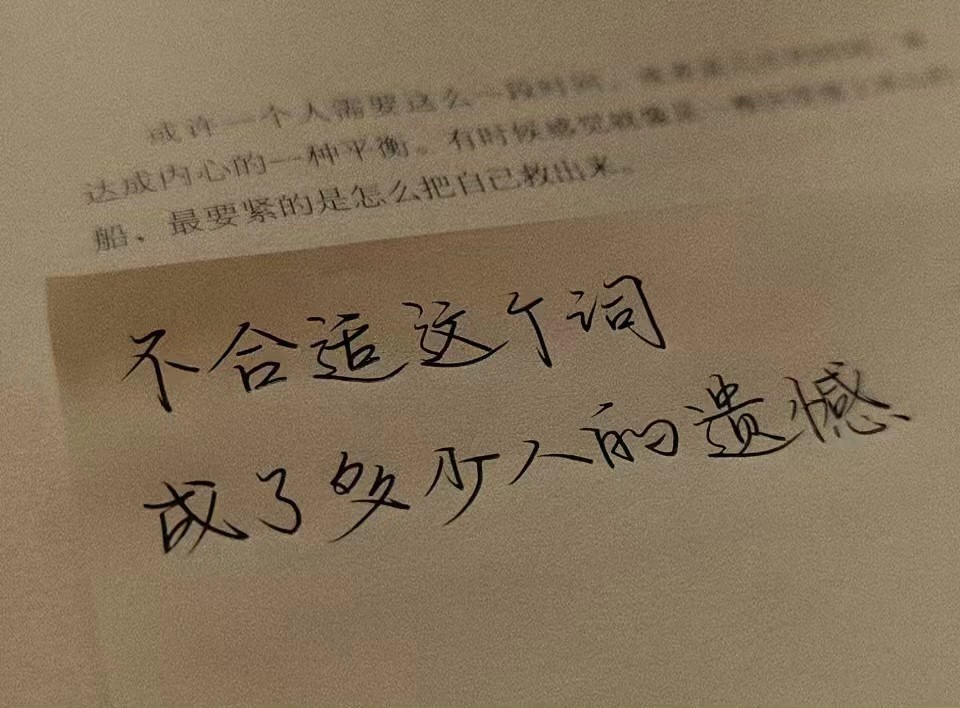 或许一个人需要这么一段时间，
达成内心的一种平衡。有时候感觉就像是一
船，最要紧的是怎么把自己救出来。
不合适这个词
成了多少人的遗憾